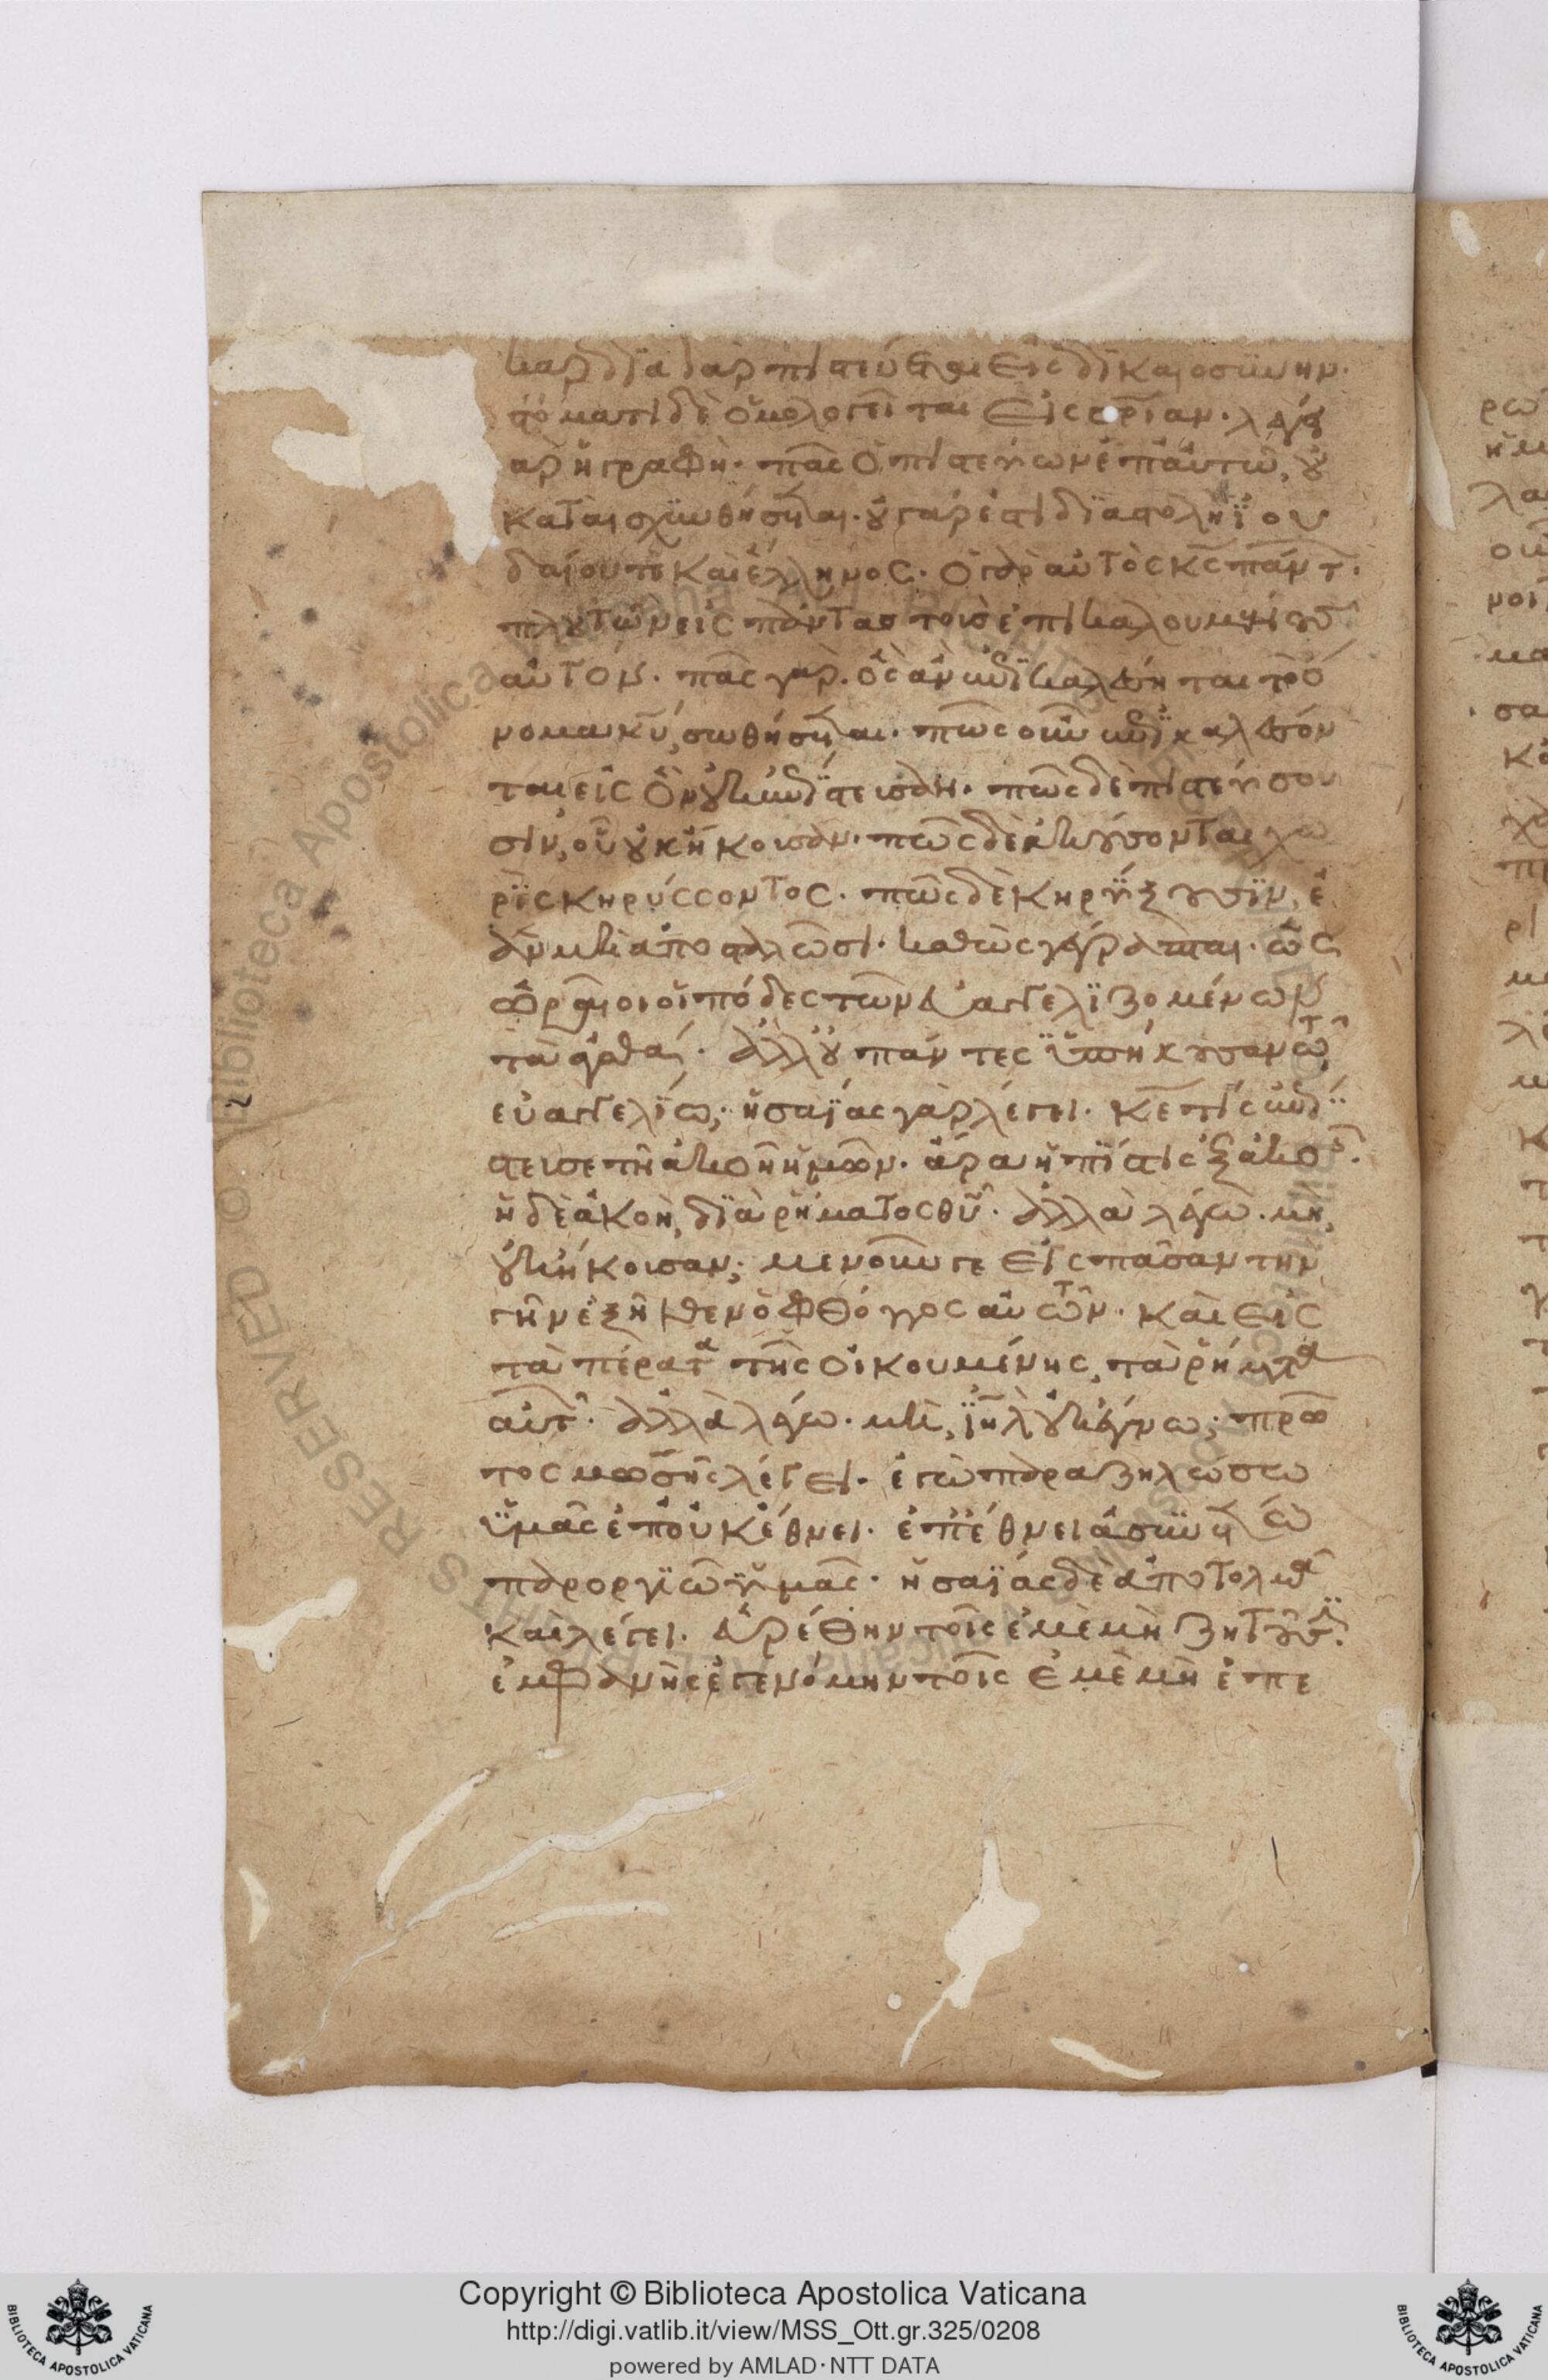 καρδία γὰρ πιστεύεται εἰς δικαιοσύνην·
στόματι δὲ ὁμολογεῖται εἰς σ̅ρ̅ίαν· λέγει
γὰρ ἡ γραφή· πᾶς ὁ πιστεύων ἐπ' αὐτῶ, οὐ
καταισχυνθήσεται· οὐ γάρ ἐστι διαστολὴ ἰου
δαίου τε καὶ ἕλληνος· ὁ γὰρ αὐτὸς κ̅ς̅ πάντ·
πλουτῶν εἰς πάντας τοὺς ἐπικαλουμένους
αὐτόν· πᾶς γὰρ ὃς ἂν ἐπικαλέσηται τὸ ὄ
νομα κ̅υ̅, σωθήσεται· πῶς οὖν ἐπικαλέσον
ται εἰς ὃν οὐκ ἐπίστευσαν· πῶς δὲ πιστεύσου
σιν, οὗ οὐκ ἤκουσαν· πῶς δὲ ἀκούσονται χω
ρὶς κηρύσσοντος· πῶς δὲ κηρύξουσιν, ἐ
ὰν μὴ ἀποσταλῶσι· καθὼς γέγραπται· ὡς
ὡραῖοι οἱ πόδες τῶν εὐαγγελιζομένων
τὰ ἀγαθά· ἀλλ' οὐ πάντες ὑπήκουσαν τῶ
εὐαγγελίω; ἡσαΐας γὰρ λέγει· κ̅ε̅ τίς ἐπί
στευσε τῆ ἀκοῆ ἡμῶν· ἄρα ἡ πίστις ἐξ ἀκοῆς·
ἡ δὲ ἀκοὴ, διὰ ῥήματος θ̅υ̅· ἀλλὰ λέγω· μὴ
οὐκ ἤκουσαν; μενοῦνγε εἰς πᾶσαν τὴν
γῆν ἐξῆλθεν ὁ φθόγγος αὐτῶν· καὶ εἰς
τὰ πέρατα τῆς οἰκουμένης, τὰ ῥήματα
αὐτ· ἀλλὰ λέγω· μὴ, ἰ̅η̅λ̅ οὐκ ἔγνω; πρῶ
τος μωσῆς λέγει· ἐγὼ παραζηλώσω
ὑμᾶς ἐπ' οὐκ ἔθνει· ἐπὶ ἔθνει ἀσυνέτω
παροργιῶ ὑμᾶς· ἡσαΐας δὲ ἀποτολμᾶ
καὶ λέγει· εὑρέθην τοῖς ἐμὲ μὴ ζητοῦσι·
ἐμφανὴς ἐγενόμην τοῖς ἐμὲ μὴ ἐπε
Copyright © Biblioteca Apostolica Vaticana
http://digi.vatlib.it/view/MSS_Ott.gr.325/0208
powered by AMLAD·NTT DATA